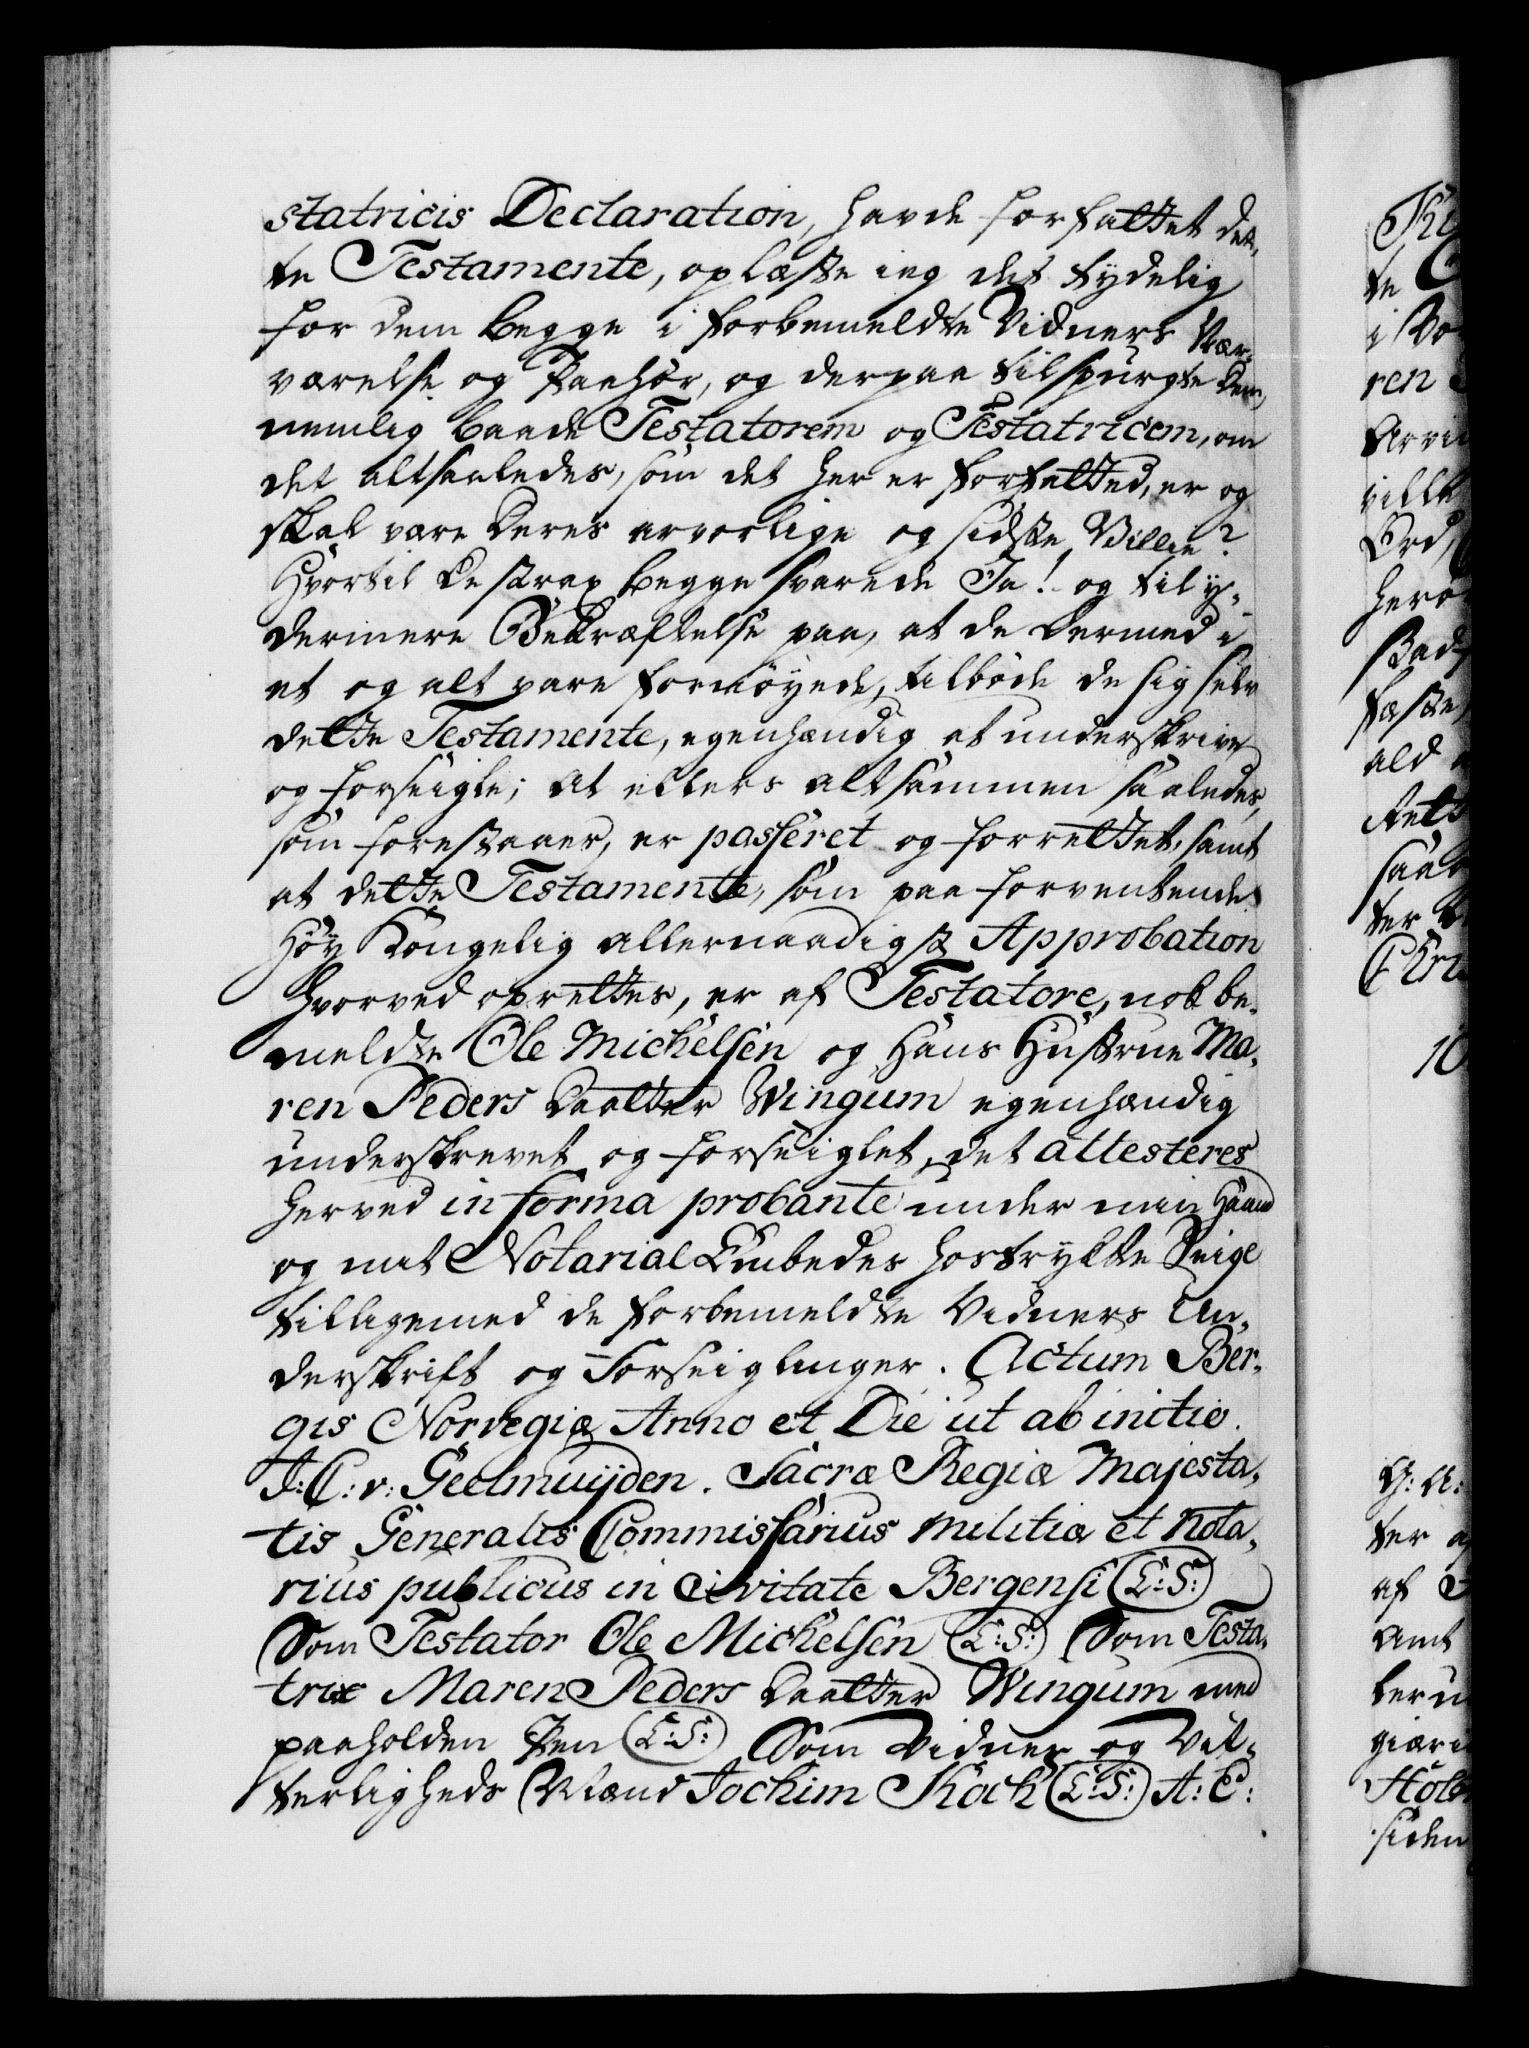 statricis Declaration, havde forfattet det-
te Testamente, oplæste ieg det tydelig
for dem begge i forbemeldte Vidners Nær-
værelse og Paahør, og derpaa tilspurgte dem,
nemlig baade Testatorem og Testatricem, om
det altsaaledes, som det her er forfatted, er og
skal være deres alvorlige og sidste Villie?
Hvortil de strax begge svarede Ja! og til y-
dermere Bekræftelse paa, at de dermed i
et og alt vare fornøyede, tilbøde de sig selv
dette Testamente, egenhændig at underskrive
og forseigle; At ellers altsammen saaledes,
som forestaaer, er passeret og forrettet, samt
at dette Testamente, som paa forventende
Høy Kongelig allernaadigst Approbation
hvorved oprettes, er af Testatore, nokbe-
meldte Ole Michelsen og Hans Hustrue Ma-
ren Peders Daatter Wingum egenhændig
underskrevet og forseiglet, det attesteres
herved in forma probante under min Haand
og mit Notarial Embedes hostrykte Seigl
tilligemed de forbemeldte Vidners Un-
derskrift og Forseiglinger. Actum Ber-
gis Norvegiæ Anno et Die ut ab initio.
J: C: v: Geelmuijden. Sacræ Regiæ Majesta-
tis Generalis Commissarius Militiæ et Nota-
rius publicus in Civitate Bergensi (L: S:)
Som Testator Ole Michelsen (L: S:) Som Testa-
trix Maren Peders Daatter Wingum med
paaholden Pen (L: S:) Som Vidner og Vit-
terligheds Mænd Jochim Koch (L: S:) A: C: